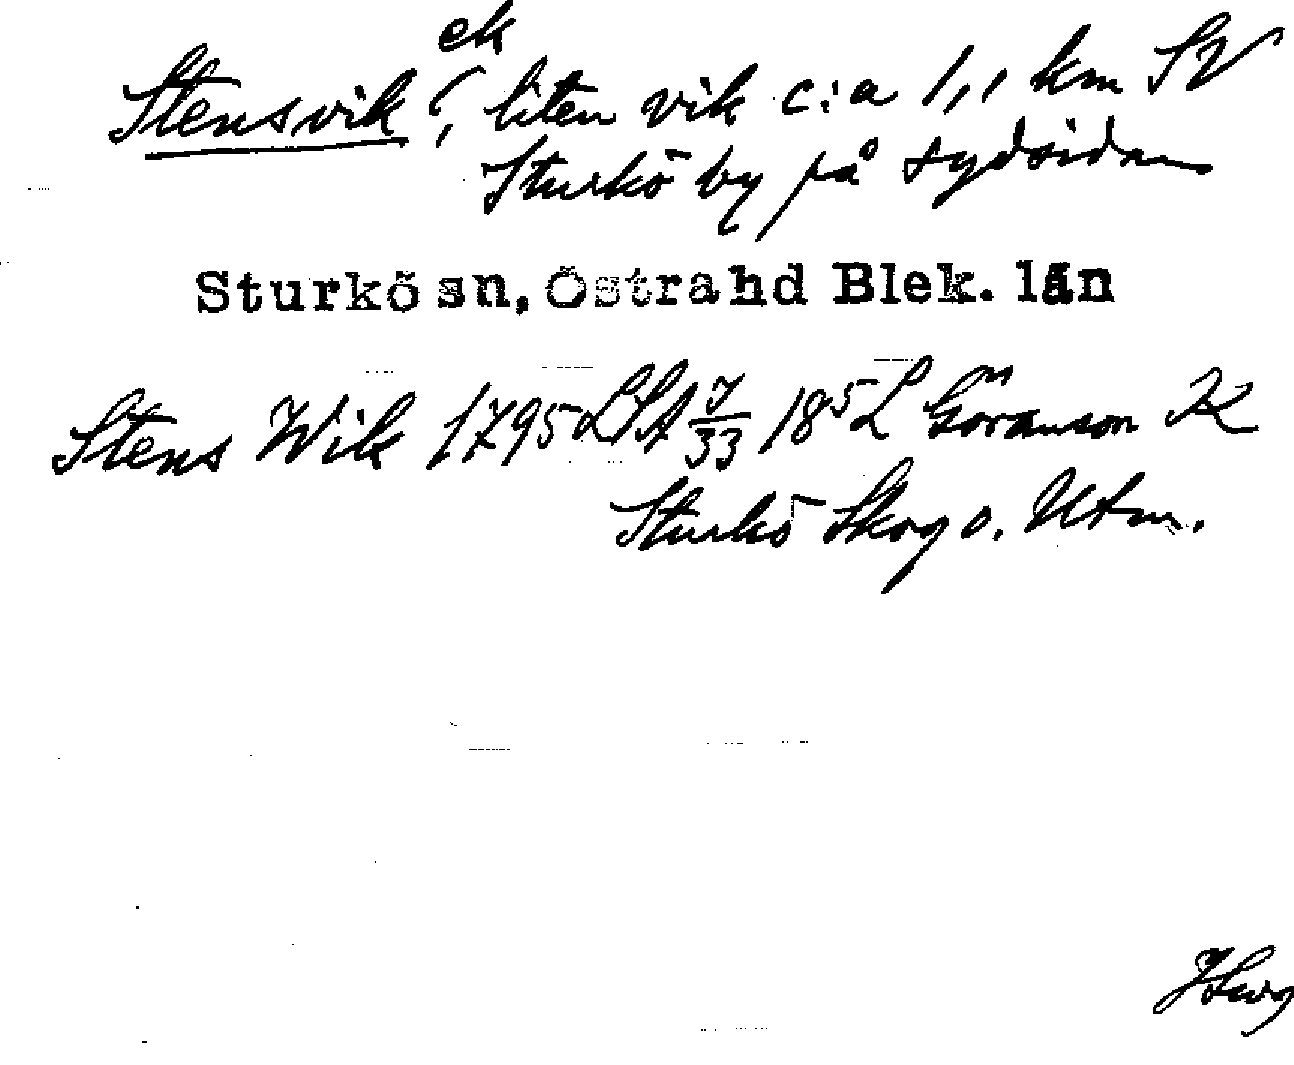 ek
Stensvik (, liten vik c:a 1,1 km SV
Sturkö by på sydsidan
Sturkö sn, Östra hd Blek. län
Stens Wik 1795 LSA 7/33 18 5 L Göranson K
Sturkö Skog o. Utm.